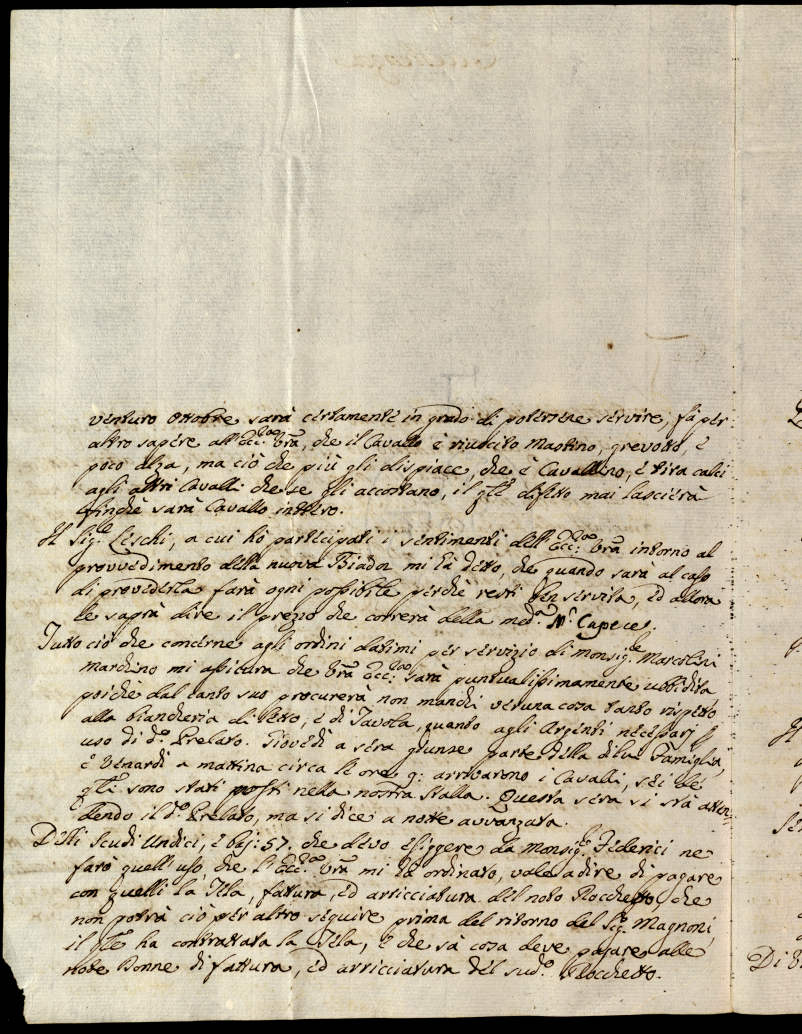 venturo Ottobre sarà certamente in grado di potersene servire, fà per
altro sapere all'Ecc:za Vra, che il Cavallo è riuscito Mastino, grevotto, e
poco alza, ma ciò che più gli dispiace, che è Cavallino, e tira calci
agli altri Cavalli che se gli accostano, il qle difetto mai lascierà
finchè sarà Cavallo intero.
Il Sig.e Leschi, a cui hò participati i sentimenti dell'Ecc:za Vra intorno al
provvedimento della nuova Biada mi hà detto, che quando sarà al caso
di provederla farà ogni possibile perchè resti ben servita, ed allora
le saprà dire il prezzo che correrà della med.a Mr Capece.
Tutto ciò che concerne agli ordini datimi per servizio di monsig.e Mascolini
Marchino mi assicura che Vra Ecc:za sarà puntualissimamente ubbidita
poichè dal canto suo procurerà non manchi veruna cosa tanto rispetto
alla biancheria di Letto, e di Tavola, quanto agli Argenti necessarj p
uso di d.o Prelato. Giovedì a sera giunse parte della di lui Famiglia,
e Venardì a mattina circa le ore 9: arrivarono i Cavalli, sei de
qli sono stati posti nella nostra stalla. Questa sera si stà atten-
dendo il d.o Prelato, ma si dice a notte avvanzata.
Delli Scudi Undici, e baj: 57. che devo esiggere da Monsig.e Federici ne
farò quell'uso, che l'Ecc:za Vra mi hà ordinato, vale a dire di pagare
con quelli la Tela, fattura, ed arricciatura del noto Rocchetto, che
non potrà ciò per altro seguire prima del ritorno del Sig.e Magnoni
il qle ha contrattata la Tela, e che sà cosa deve pagare alle
note Donne di fattura, ed arricciatura del sud.o Rocchetto.